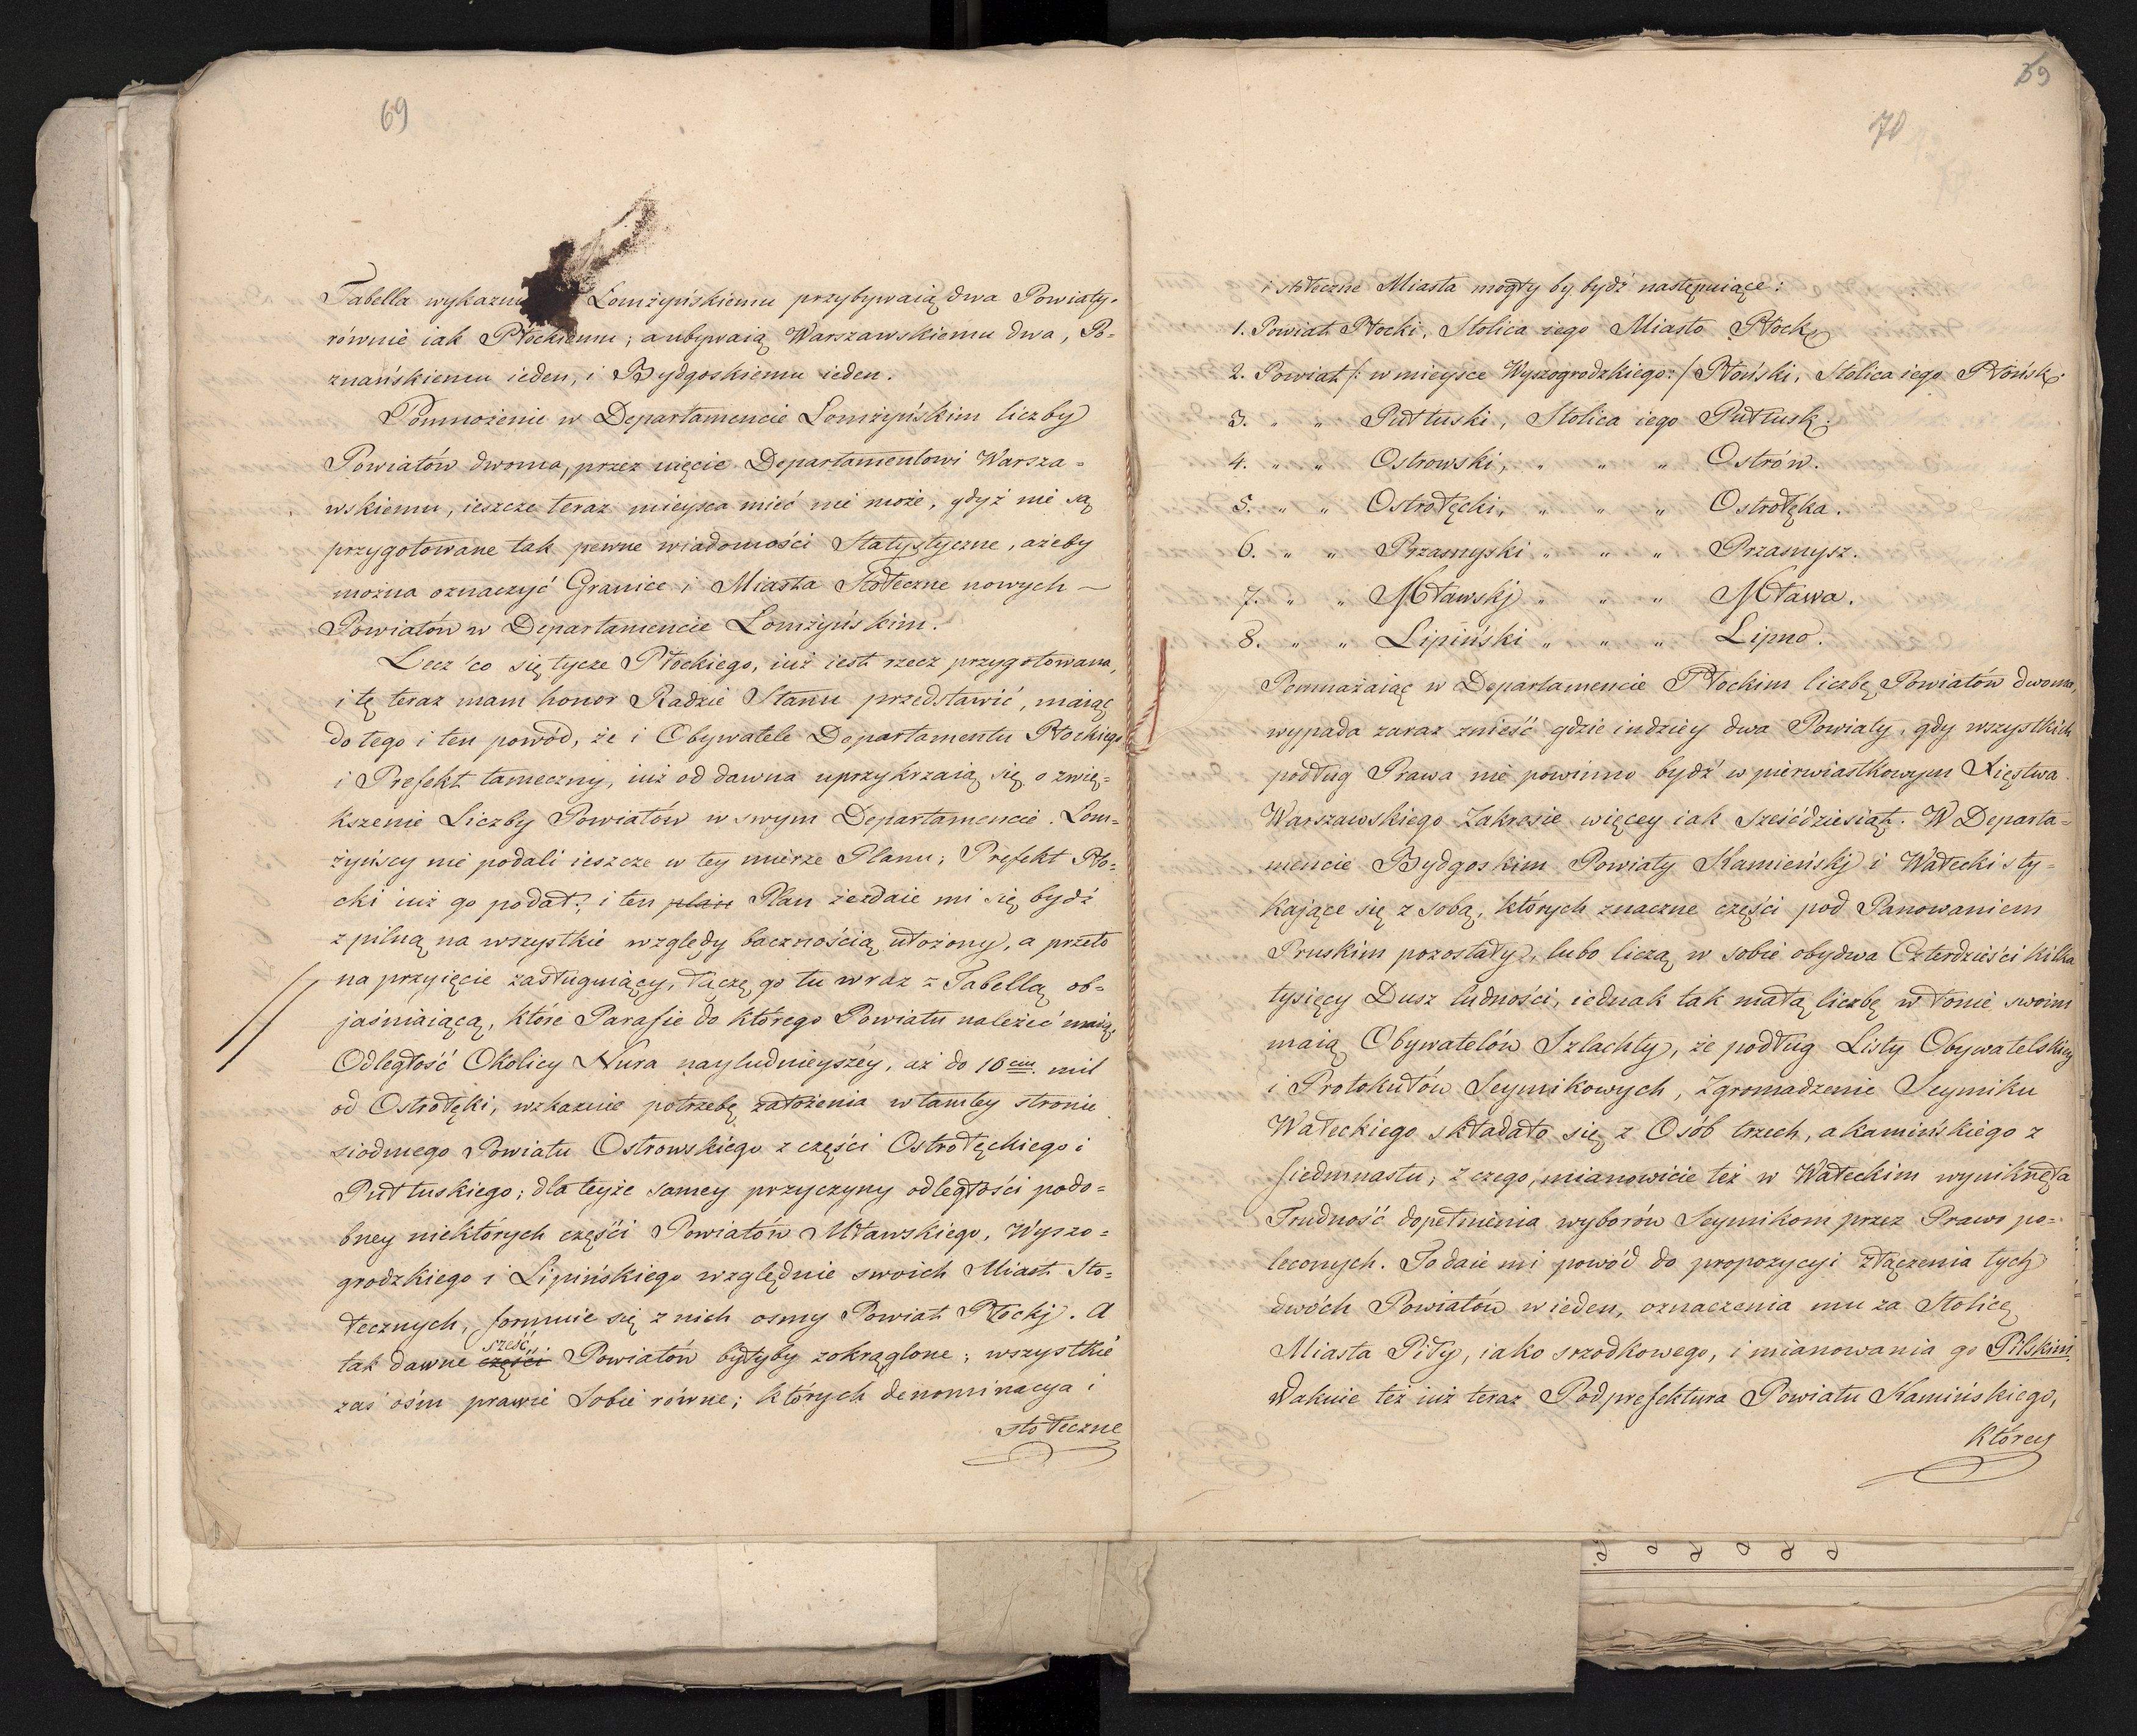 69
Tabella wykazuie Łomżyńskiemu przybywaią dwa Powiaty.
równie iak Płockiemu; a ubywaią Warszawskiemu dwa, Po-
znańskiemu ieden, i Bydgoskiemu ieden.
Pomnożenie w Departamencie Łomżyńskim liczby
Powiatów dwoma, przez uięcie Departamentowi Warsza-
wskiemu, ieszcze teraz mieysca mieć nie może, gdyż nie są
przygotowane tak pewne wiadomości Statystyczne, ażeby
można oznaczyć Granice i Miasta Stołeczne nowych —
Powiatów w Departamencie Łomżyńskim.
Lecz co się tycze Płockiego, iuż iest rzecz przygotowana,
i tę teraz mam honor Radzie Stanu przedstawić, maiąc
do tego i ten powód, że i Obywatele Departamentu Płockiego
i Prefekt tameczny, iuż od dawna uprzykrzaią się o zwię-
kszenie Liczby Powiatów w swym Departamencie. Łom-
żyńscy nie podali ieszcze w tey mierze Planu; Prefekt Pło-
cki iuż go podał; i ten plan Plan że zdaie mi się bydź
z pilną na wszystkie względy bacznością ułożony, a przeto
na przyięcie zasługuiący, łączę go tu wraz z Tabellą ob-
jaśniaiącą, które Parafie do którego Powiatu należeć maią.
Odległość Okolicy Nura nayludnieyszéy, aż do 10ciu mil
od Ostrołęki, wskazuie potrzebę założenia w tamtey stronie
siodmego Powiatu Ostrowskiego z części Ostrołęckiego i
Pułtuskiego; dla teyże samey przyczyny odległości podo-
bney niektórych części Powiatów Mławskiego, Wyszo-
grodzkiego i Lipińskiego względnie swoich Miast Sto-
łecznych, formuie się z nich osmy Powiat Płockj. A
sześć
tak dawne części Powiatów byłyby zokrąglone; wszystkie
zaś ośm prawie sobie równe; których denominacya i
stołeczne
39
70
i stołeczne Miasta mogły by bydź następuiące:
1. Powiat Płocki, Stolica iego Miasto Płock
2. Powiat /: w mieysce Wyszogrodzkiego: / Płoński, Stolica iego Płońsk.
3. " " Pułtuski, Stolica iego Pułtusk.
4. " " Ostrowski, " " " Ostrów.
5. " " Ostrołęcki, " " " Ostrołęka.
6. " " Przasnyski " " " Przasnysz.
7. " " Mławskj " " " Mława.
8. " " Lipiński " " " Lipno.
Pomnażaiąc w Departamencie Płockim liczbę Powiatów dwoma,
wypada zaraz znieść gdzie indziey dwa Powiaty, gdy wszystkich
podług Prawa nie powinno bydź w pierwiastkowym Xięstwa
Warszawskiego Zakresie więcey iak sześćdziesiąt. W Departa-
mencie Bydgoskim Powiaty Kamieńskj i Wałecki sty-
kające się z sobą, których znaczne części pod Panowaniem
Pruskim pozostały, lubo liczą w sobie obydwa Czterdzieści kilka
tysięcy Dusz ludności, iednak tak małą liczbę w łonie swoim
maią Obywatelów Szlachty, że podług Listy Obywatelskiey
i Protokułów Seymikowych, Zgromadzenie Seymiku
Wałeckiego składało się z Osób trzech, a Kamińskiego z
siedmnastu; z czego, mianowicie też w Wałeckim wyniknęła
Trudność dopełnienia wyborów Seymikom przez Prawo po-
leconych. To daie mi powód do propozycyi złączenia tych
dwóch Powiatów w ieden, oznaczenia mu za Stolicę
Miasta Piły, iako srzodkowego, i mianowania go Pilskim.
Wakuie też iuż teraz Podprefektura Powiatu Kamińskiego,
którey